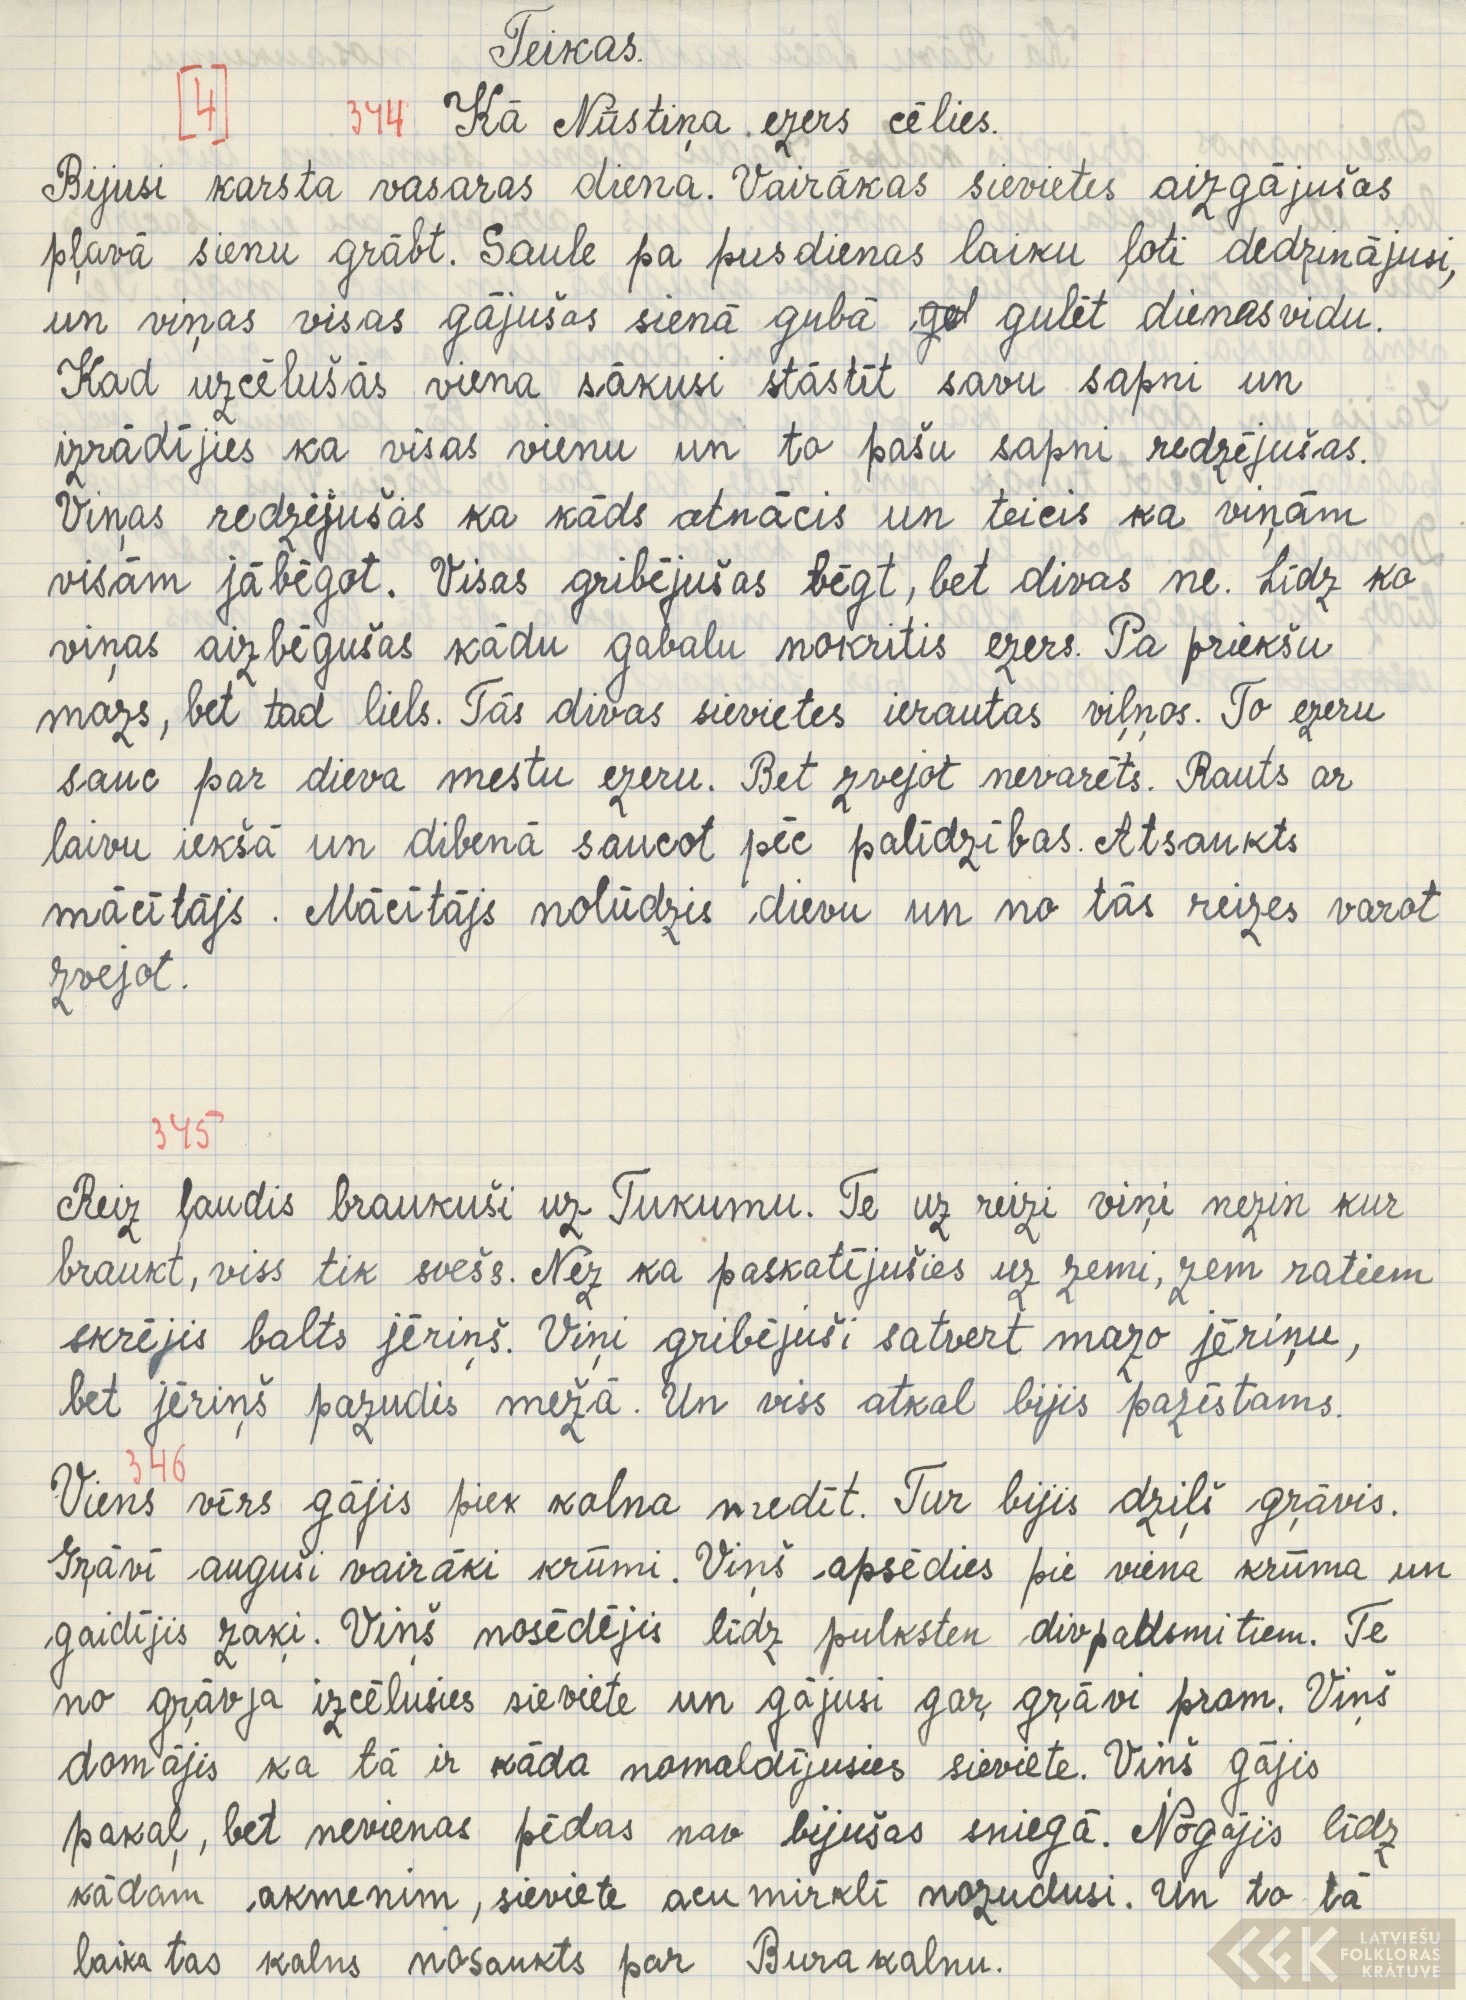 Teikas.
[4] 344 Kā Nūstiņa ezers cēlies.
Bijusi karsta vasaras diena. Vairākas sievietes aizgājušas
pļavā sienu grābt. Saule pa pusdienas laiku ļoti dedzinājusi,
un viņas visas gājušas sienā gubā gul gulēt dienasvidu.
Kad uzcēlušās viena sākusi stāstīt savu sapni un
izrādījies ka visas vienu un to pašu sapni redzējušas.
Viņas redzējušas ka kāds atnācis un teicis ka viņām
visām jābēgot. Visas gribējušas bēgt, bet divas ne. Līdz ko
viņas aizbēgušas kādu gabalu nokritis ezers. Pa priekšu
mazs, bet tad liels. Tās divas sievietes ierautas viļņos. To ezeru
sauc par dieva mestu ezeru. Bet zvejot nevarēts. Rauts ar
laivu iekšā un dibenā saucot pēc palīdzības. Atsaukts
mācītājs. Mācītājs nolūdzis dievu un no tās reizes varot
zvejot.
345
Reiz ļaudis braukuši uz Tukumu. Te uz reizi viņi nezin kur
braukt, viss tik svešs. Nēz ka paskatījušies uz zemi, zem ratiem
skrējis balts jēriņš. Viņi gribējuši satvert mazo jēriņu,
bet jēriņš pazudis mežā. Un viss atkal bijis pazīstams.
346
Viens vīrs gājis piek kalna medīt. Tur bijis dziļš gŗāvis.
Gŗāvī auguši vairāki krūmi. Viņš apsēdies pie viena krūma un
gaidījis zaķi. Viņš nosēdējis līdz pulksten divpadsmitiem. Te
no gŗāvja izcēlusies sieviete un gājusi gaŗ gŗāvi prom. Viņš
domājis ka tā ir kāda nomaldījusies sieviete. Viņš gājis
pakaļ, bet nevienas pēdas nav bijušas sniegā. Nogājis līdz
kādam akmenim, sieviete acumirklī nozudusi. Un to tā
laika tas kalns nosaukts par Bura kalnu.
LATVIEŠU
FOLKLORAS
KRĀTUVE